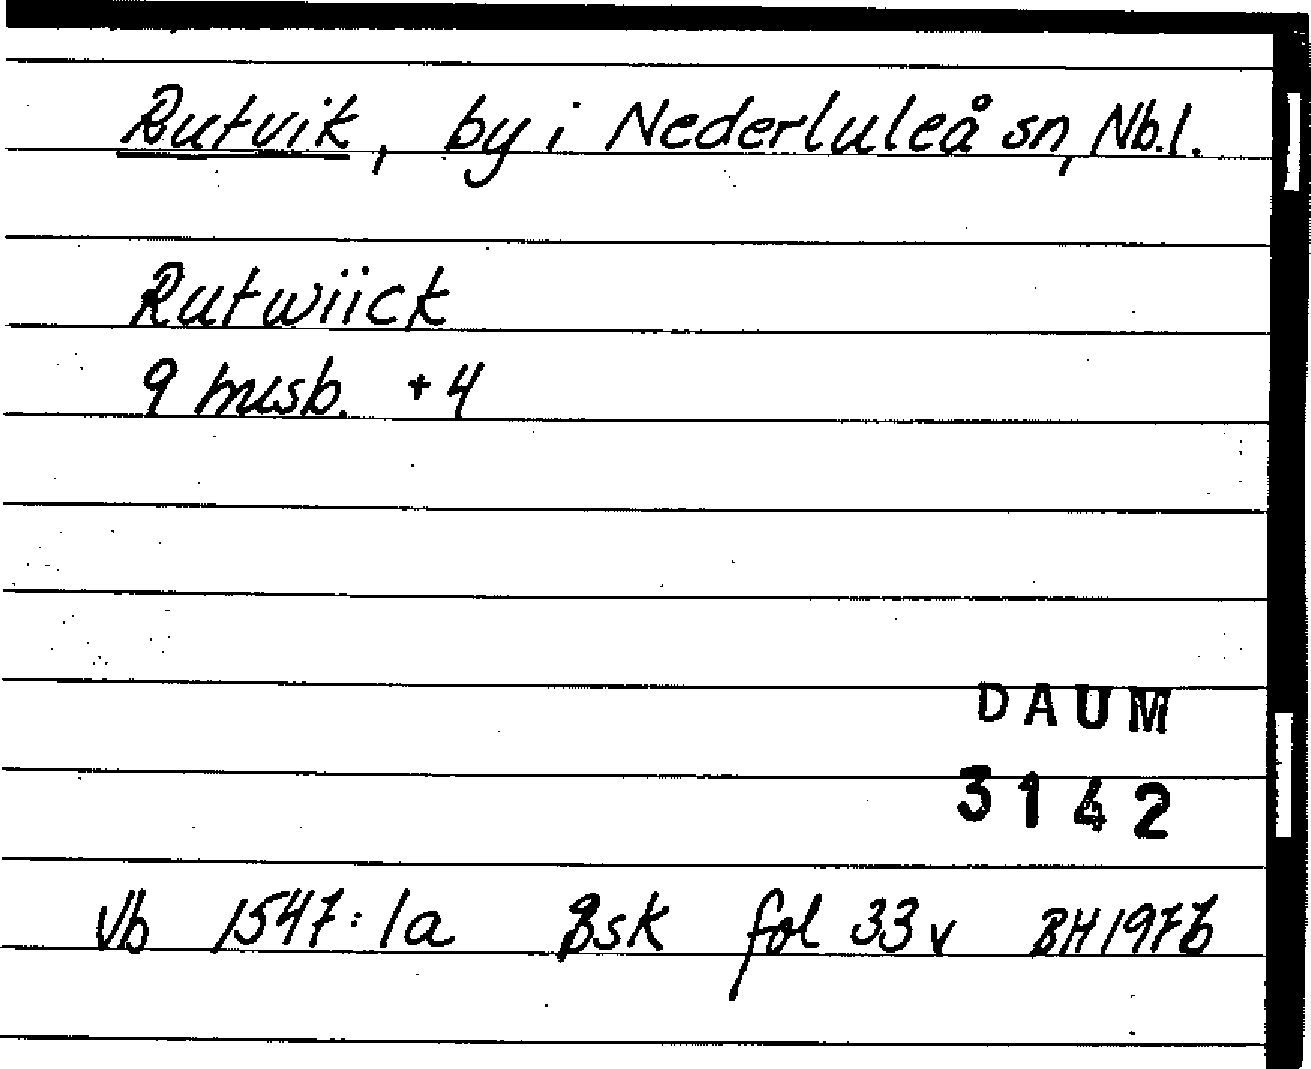 Rutvik, by i Nederluleå sn, Nb.l.
Rutwiick
9 mcsb. + 4
DAUM
3142
Vb 1547:1a Bsk fol 33v BH 1976